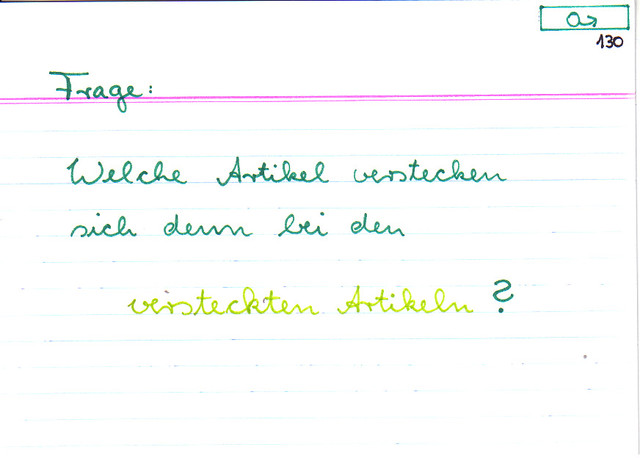 130
Frage:
Welche Artikel verstecken
sich denn bei den
versteckten Artikeln?